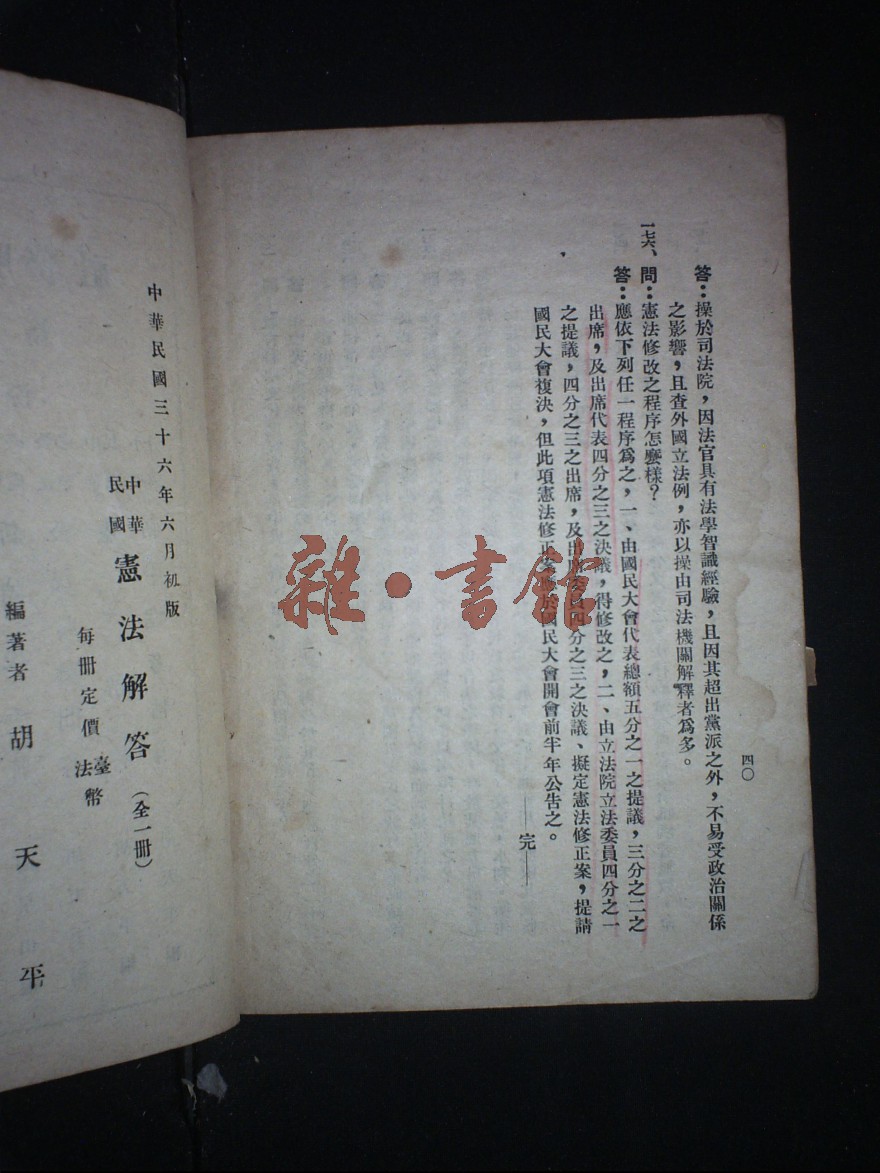 四〇
答：操於司法院，因法官具有法學智識經驗，且因其超出黨派之外，不易受政治關係
之影響，且查外國立法例，亦以操由司法機關解釋者爲多。
一七六、問：憲法修改之程序怎麼樣？
答：應依下列任一程序爲之，一、由國民大會代表總額五分之一之提議，三分之二之
出席，及出席代表四分之三之決議，得修改之，二、由立法院立法委員四分之一
之提議，四分之三之出席，及出席委員四分之三之決議、擬定憲法修正案，提請
國民大會複決，但此項憲法修正案應於國民大會開會前半年公告之。
——完——
中華民國三十六年六月初版
中華民國 憲法解答（全一冊）
每冊定價 臺幣 法幣
編著者 胡天平
雜·書館